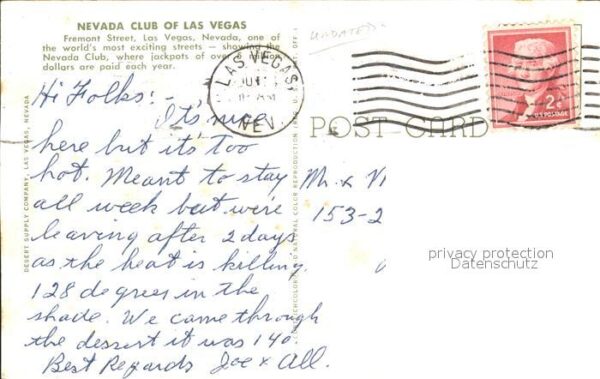 NEVADA CLUB OF LAS VEGAS
Fremont Street, Las Vegas, Nevada, one of
the world's most exciting streets — showing the
Nevada Club, where jackpots of over a million
dollars are paid each year.
UNDATED
LAS VEGAS
AM
NEV.
2¢
U.S. POSTAGE
POST CARD
Hi Folks: -
It's nice
here but it's too
hot. Meant to stay
all week but we're
leaving after 2 days
as the heat is killing.
128 degrees in the
shade. We came through
the dessert it was 140
Best Regards Joe & All.
Mr. &
153-2
DESERT SUPPLY COMPANY, LAS VEGAS, NEVADA
NATURAL COLOR REPRODUCTION
privacy protection
Datenschutz